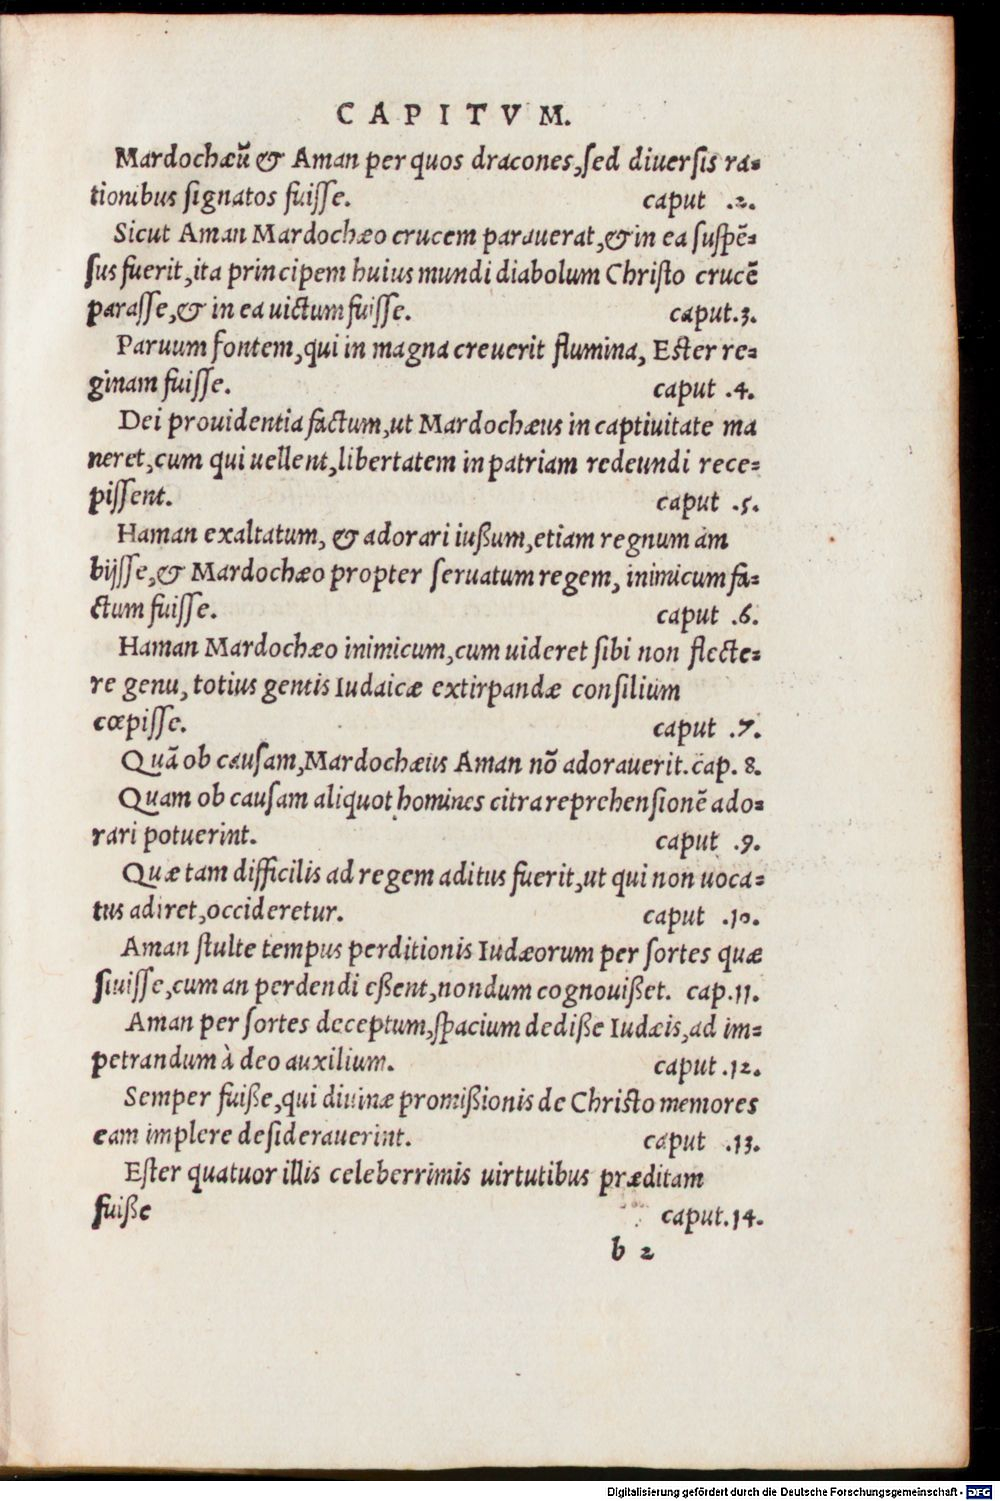 CAPITVM.
Mardochæũ & Aman per quos dracones, sed diuersis ra-
tionibus signatos fuisse. caput .2.
Sicut Aman Mardochæo crucem parauerat, & in ea suspẽ-
sus fuerit, ita principem huius mundi diabolum Christo crucẽ
parasse, & in ea uictum fuisse. caput.3.
Paruum fontem, qui in magna creuerit flumina, Ester re-
ginam fuisse. caput .4.
Dei prouidentia factum, ut Mardochæus in captiuitate ma
neret, cum qui uellent, libertatem in patriam redeundi rece-
pissent. caput .5.
Haman exaltatum, & adorari iußum, etiam regnum am
bijsse, & Mardochæo propter seruatum regem, inimicum fa-
ctum fuisse. caput .6.
Haman Mardochæo inimicum, cum uideret sibi non flecte-
re genu, totius gentis Iudaicæ extirpandæ consilium
cœpisse. caput .7.
Quã ob causam, Mardochæus Aman nõ adorauerit. cap. 8.
Quam ob causam aliquot homines citra reprehensionẽ ado-
rari potuerint. caput .9.
Quæ tam difficilis ad regem aditus fuerit, ut qui non uoca-
tus adiret, occideretur. caput .10.
Aman stulte tempus perditionis Iudæorum per sortes quæ
siuisse, cum an perdendi eßent, nondum cognouißet. cap.11.
Aman per sortes deceptum, spacium dediße Iudæis, ad im-
petrandum à deo auxilium. caput .12.
Semper fuiße, qui diuinæ promißionis de Christo memores
eam implere desiderauerint. caput .13.
Ester quatuor illis celeberrimis uirtutibus præditam
fuiße caput.14.
b 2
Digitalisierung gefördert durch die Deutsche Forschungsgemeinschaft - DFG